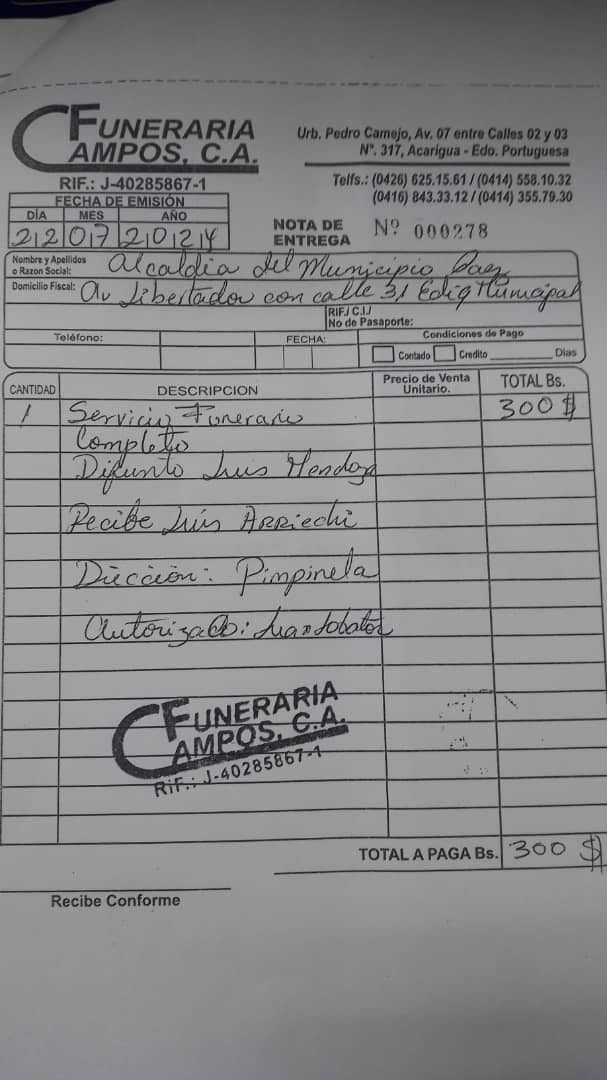 FUNERARIA
CAMPOS, C.A.
RIF.: J-40285867-1
Urb. Pedro Camejo, Av. 07 entre Calles 02 y 03
Nº. 317, Acarigua - Edo. Portuguesa
Telfs.: (0426) 625.15.61 / (0414) 558.10.32
(0416) 843.33.12 / (0414) 355.79.30
FECHA DE EMISIÓN
DÍA MES AÑO
22 07 2024
NOTA DE ENTREGA Nº 000278
Nombre y Apellidos o Razon Social: Alcaldia del Municipio Paez
Domicilio Fiscal: Av Libertador con calle 31 Edig Municipal
RIF./ C.I./
No de Pasaporte:
Teléfono: FECHA: Condiciones de Pago
Contado Credito Dias
CANTIDAD DESCRIPCION Precio de Venta Unitario. TOTAL Bs.
1 Servicio Funerario 300 $
Completo
Difunto Luis Mendoza
Recibe Luís ARRiechi
Dicción: Pimpinela
Autorizado:
FUNERARIA
CAMPOS, C.A.
RiF.: J-40285867-1
TOTAL A PAGA Bs. 300 $
Recibe Conforme